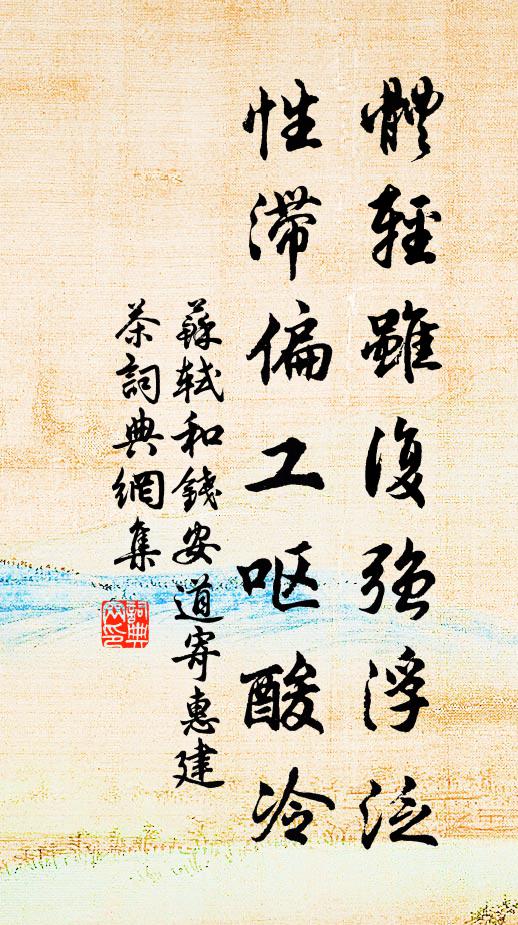 體輕雖復強浮泛
性滯偏工呕酸冷
蘇軾和錢安道寄惠建
茶詞典網集
詞典